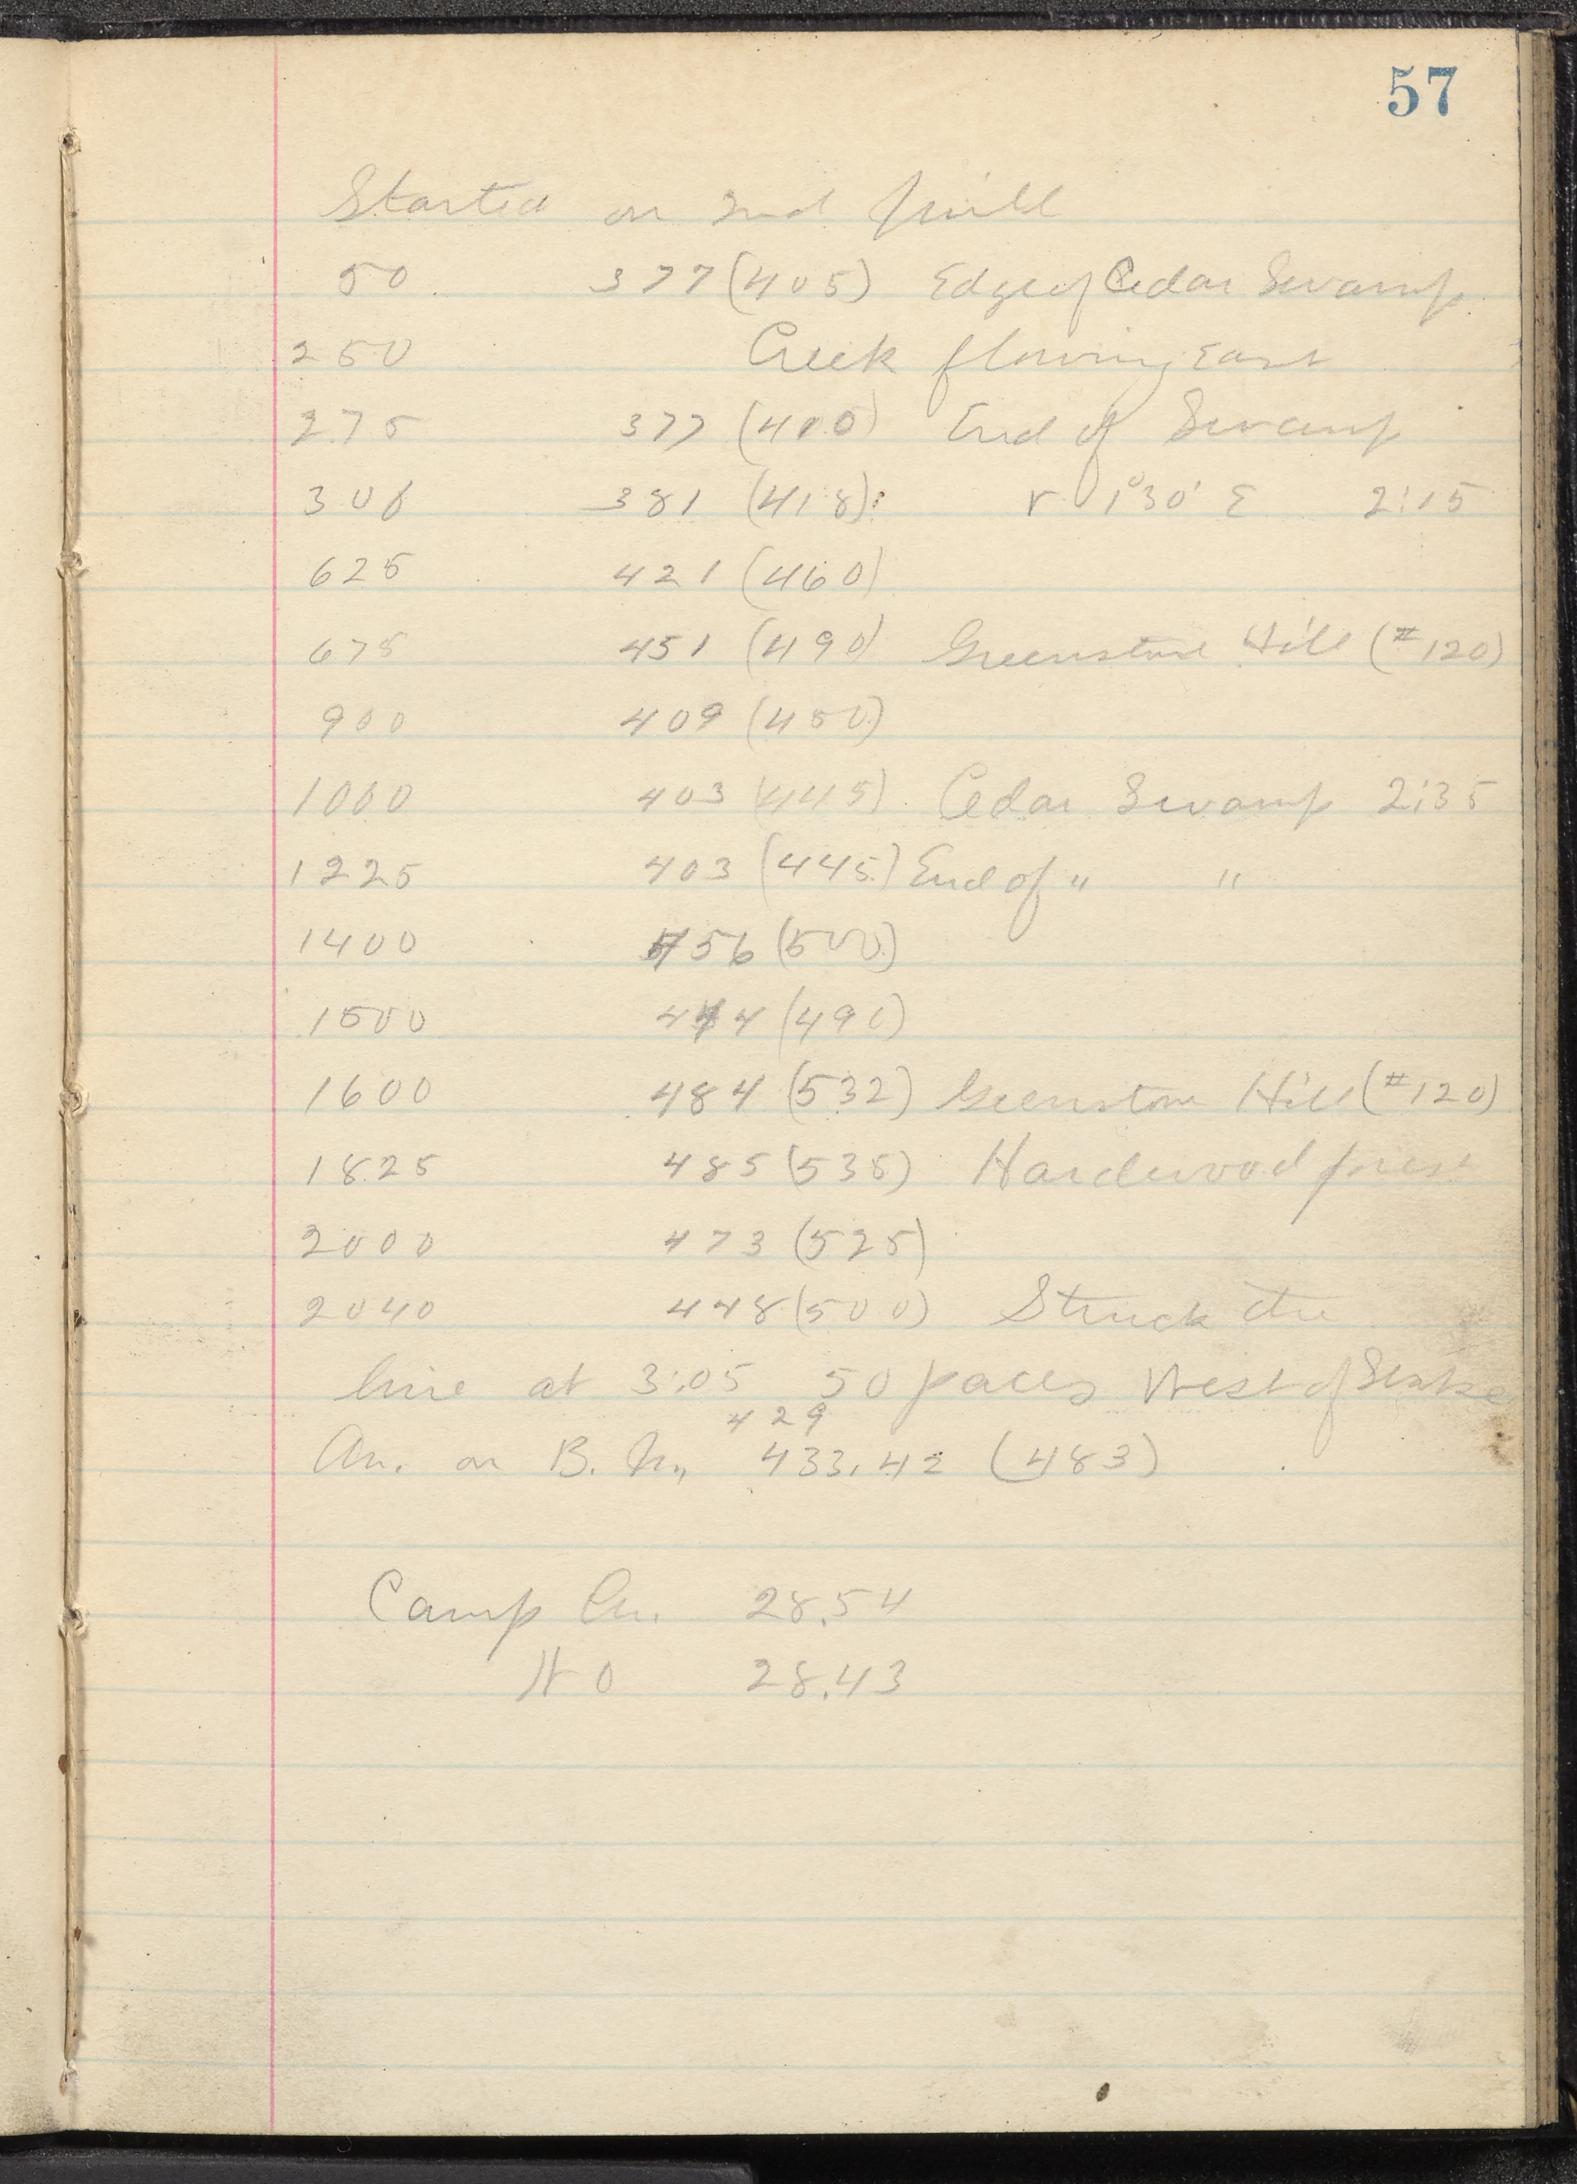 57
Started on 2nd mile
50 377 (405) Edge of Cedar Swamp
250 Creek flowing East
275 377 (400) End of Swamp
300 381 (418) V 1°30' E 2:15
625 421 (460)
675 451 (490) Greenstone Hill (#120)
900 409 (450)
1000 403 (445) Cedar Swamp 2:35
1225 403 (445) End of " "
1400 456 (500)
1500 444 (490)
1600 484 (532) Greenstone Hill (#120)
1825 485 (535) Hardwood forest
2000 473 (525)
2040 448 (500) Struck the
line at 3:05 50 paces West of Stake
429
An. on B. M., 433.42 (483)
Camp An. 28.54
28.43